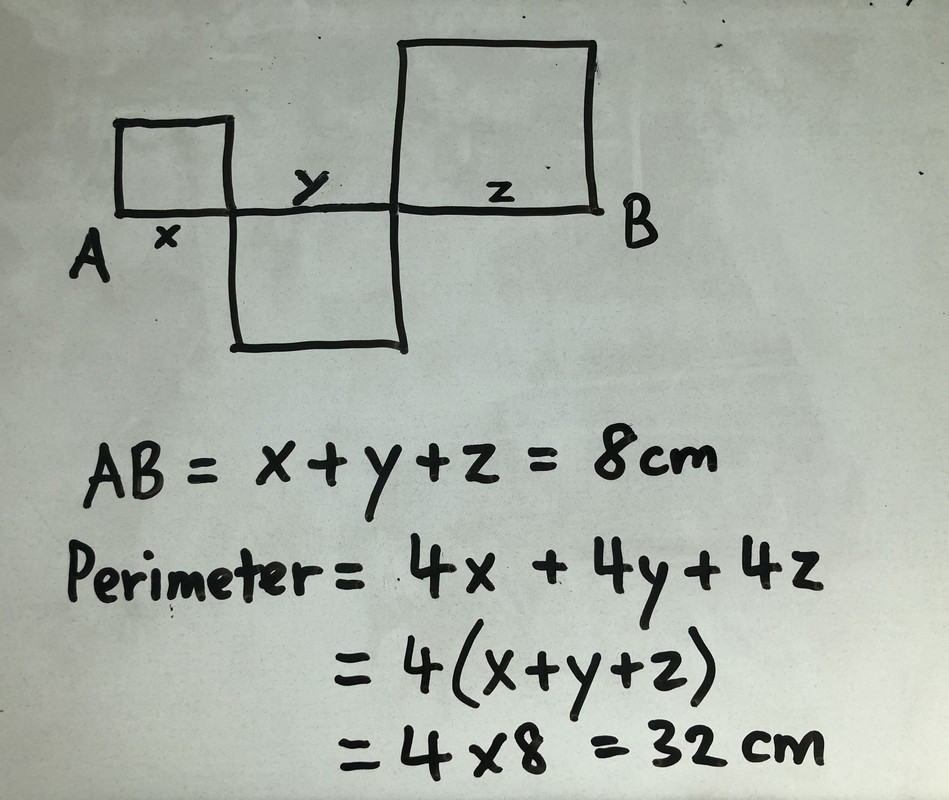 y
z
A
x
B
AB = x+y+z = 8cm
Perimeter = 4x + 4y + 4z
= 4(x+y+z)
= 4 x 8 = 32 cm